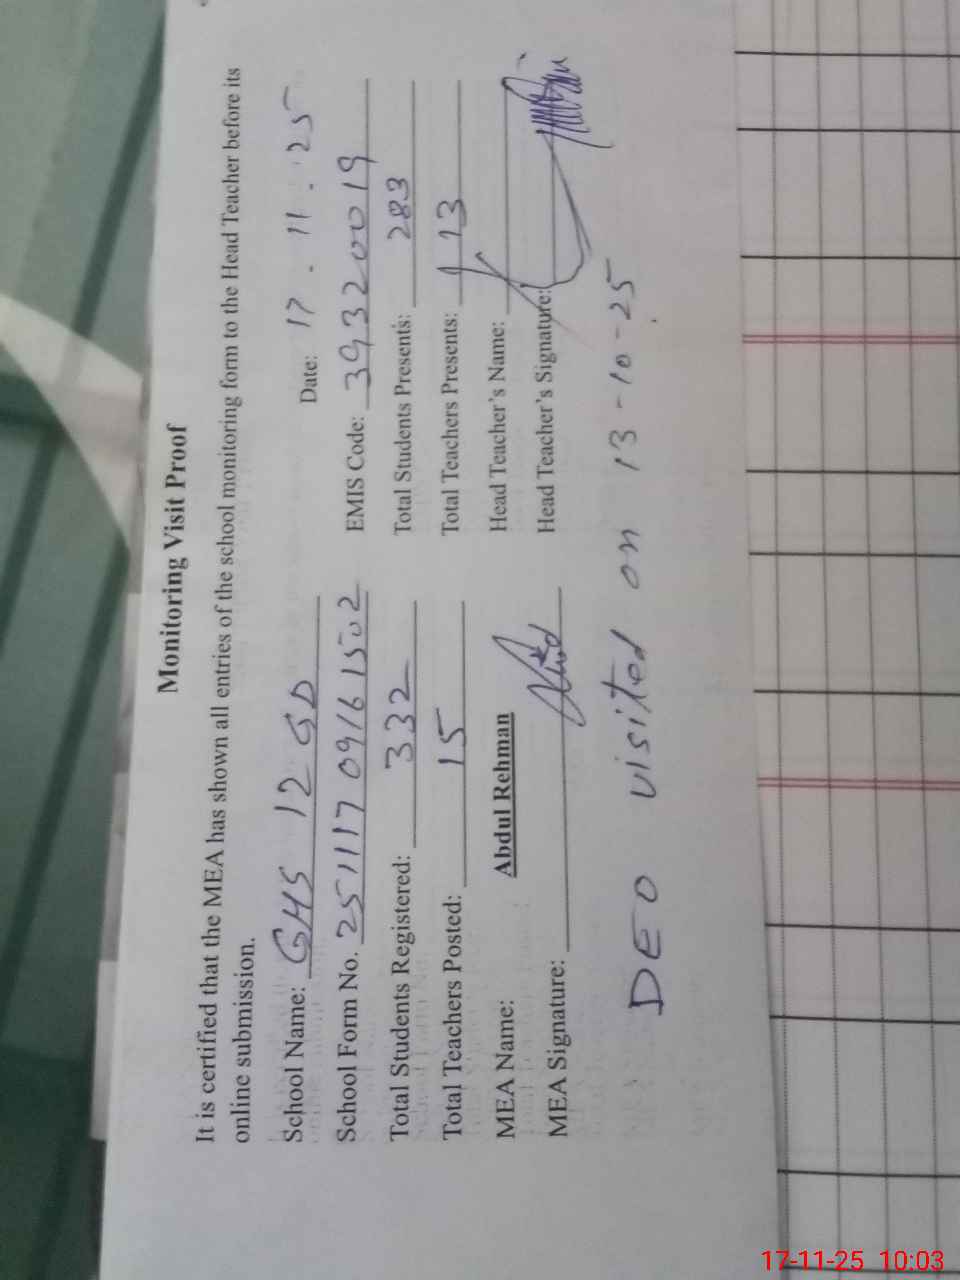 Monitoring Visit Proof
It is certified that the MEA has shown all entries of the school monitoring form to the Head Teacher before its
online submission.
School Name: GHS 12 GD Date: 17 . 11 . 25
School Form No. 251117 0916 1502 EMIS Code: 39320019
Total Students Registered: 332 Total Students Presents: 283
Total Teachers Posted: 15 Total Teachers Presents: 13
MEA Name: Abdul Rehman Head Teacher's Name:
MEA Signature: Head Teacher's Signature:
DEO visited on 13-10-25
17-11-25 10:03